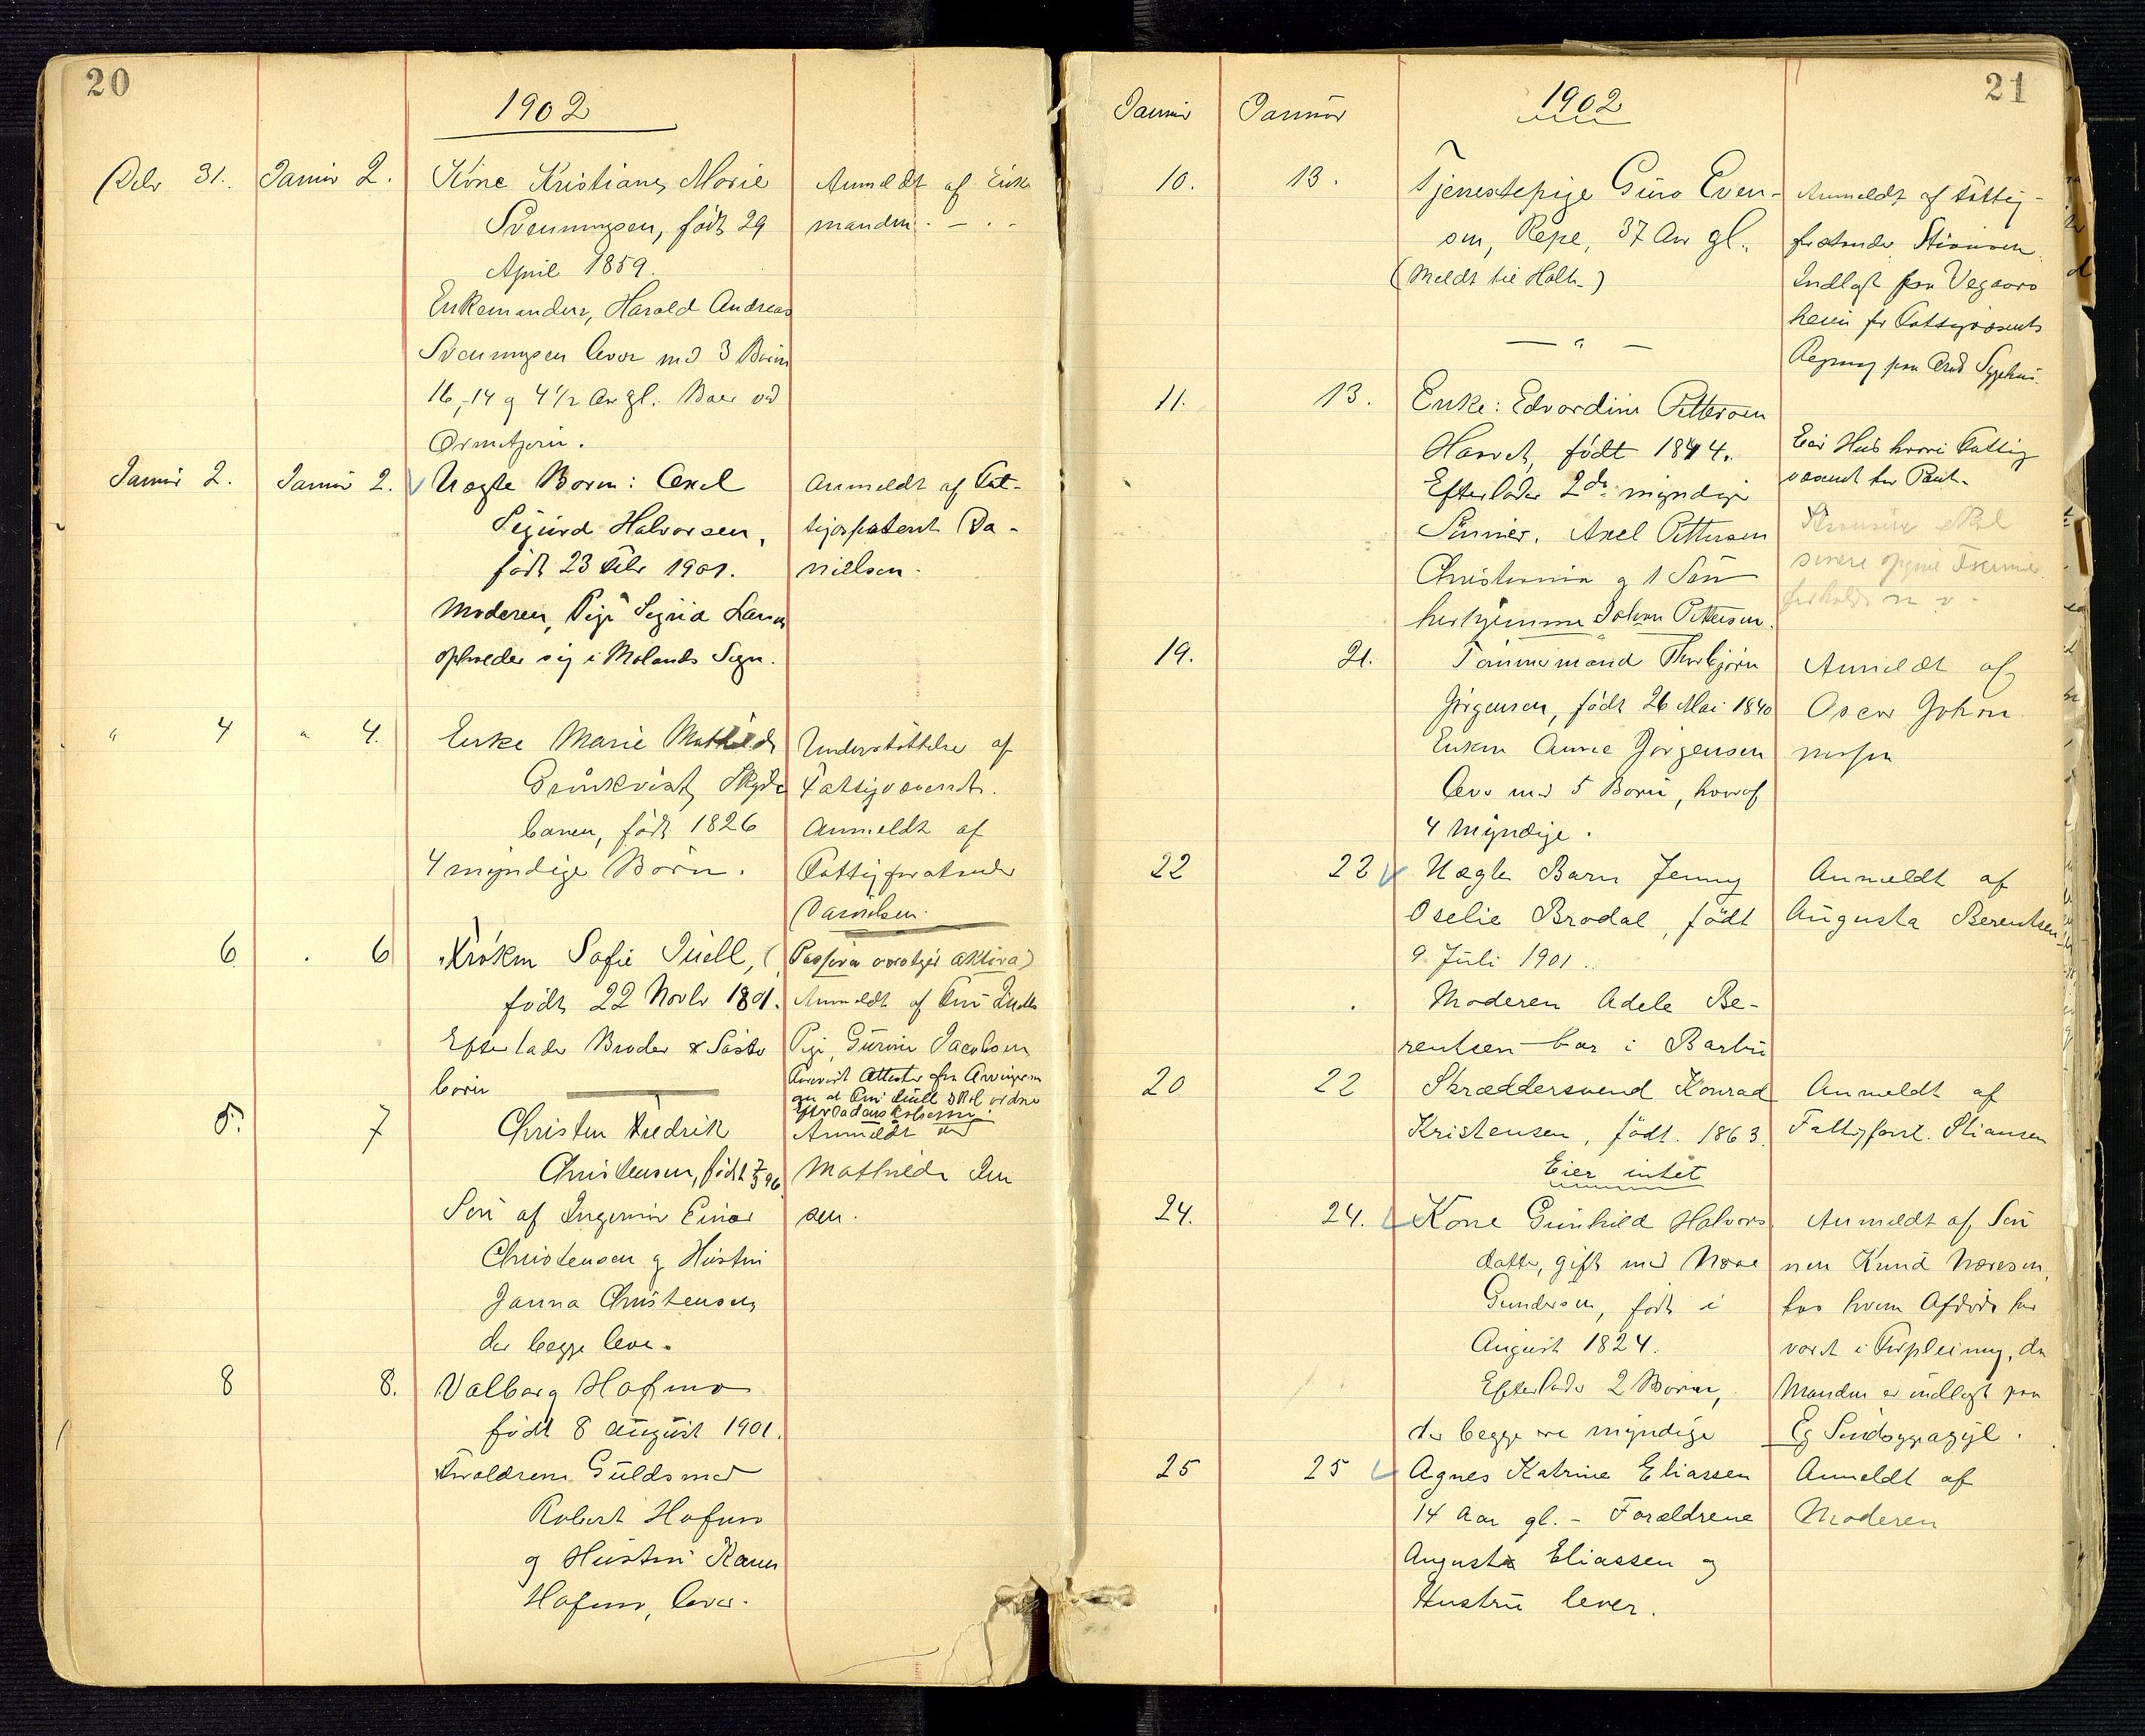 20
1902
Decbr 31. Januar 2. Kone Kristiane Marie Anmeldt af Enke
Svenningsen, født 29 manden. — . -
April 1859.
Enkemanden, Harald Andreas
Svenningsen lever med 3 Børn
16, 14 og 4 1/2 Aar gl. Boer ved
Ormetjern.
Januar 2. Januar 2. Uægte Barn: Axel Anmeldt af Fat-
Sigurd Halvorsen, tigforstand. Da-
født 23 Febr 1901. nielsen.
Moderen, Pige Sigrid Larsen
opholder sig i Molands Sogn.
" 4 " 4. Enke Marie Mathilde Understøttelse af
Grønkvist, Skyde Fattigvæsendet.
banen, født 1826 Anmeldt af
4 myndige Børn. Fattigforstander
Danielsen.
6 . 6 Frøken Sofie Juell, (Passiva overstiger aktiva)
født 22 Novbr 1801. Anmeldt af Frk Juells
Efterlader Broder & Søster Pige, Gurine Jacobsen
børn
Skrædder
5. 7 Christen Fredrik Anmeldt ved
Christensen, født 7/3 96. Mathilde Jen
Søn af Ingeniør Einar sen.
Christensen og Hustru
Janna Christensen,
der begge lever.
8 8. Valborg Hofmo
født 8 August 1901.
Forældrene Guldsmed
Robert Hofmo
og Hustru Karen
Hofmo, lever.
21
Januar Januar 1902
10. 13. Tjenestepige Guro Even- Anmeldt af Fattig-
sen, Repe, 37 Aar gl. forstander Stiansen.
(Meldt til Holt) Indlagt fra Vegaars
heien for Fattigvæsenets
— " — Regning paa Arnd Sygehus.
11. 13. Enke: Edvardine Pettersen
Harvet, født 1844. Eier Hus hvori Fattig
Efterlader 2de myndige væsenet har Pant.
Sønner. Axel Pettersen
Christiania og 1 Søn
herhjemme Johan Pettersen.
19. 21. Tømmermand Thorbjørn Anmeldt af
Jørgensen, født 26 Mai 1840 Oscar Johan
Enken Anne Jørgensen nessen
lever med 5 Børn, hvoraf
4 myndige.
22 22 Uægte Barn Jenny Anmeldt af
Oselie Brodal, født Augusta Berentsen
9 Juli 1901.
Moderen Adele Be-
rentsen bor i Barbu
20 22 Skræddersvend Konrad Anmeldt af
Kristensen, født. 1863. Fattigforst. Stiansen
Eier intet
24. 24. Kone Gunhild Halvors Anmeldt af Søn
datter, gift med Nære nen Knud Næresen,
Gundersen, født i hos hvem Afdøde har
August 1824. været i Forpleining, da
Efterlader 2 Børn, Manden er indlagt paa
der begge ere myndige Eg Sindssygeasyl.
25 25 Agnes Katrine Eliassen Anmeldt af
14 Aar gl. - Forældrene Moderen
August Eliassen og
Hustru lever.